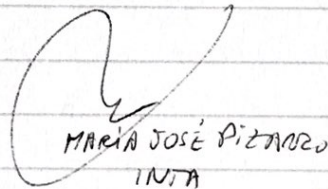 MARÍA JOSÉ PIZARRO
INTA